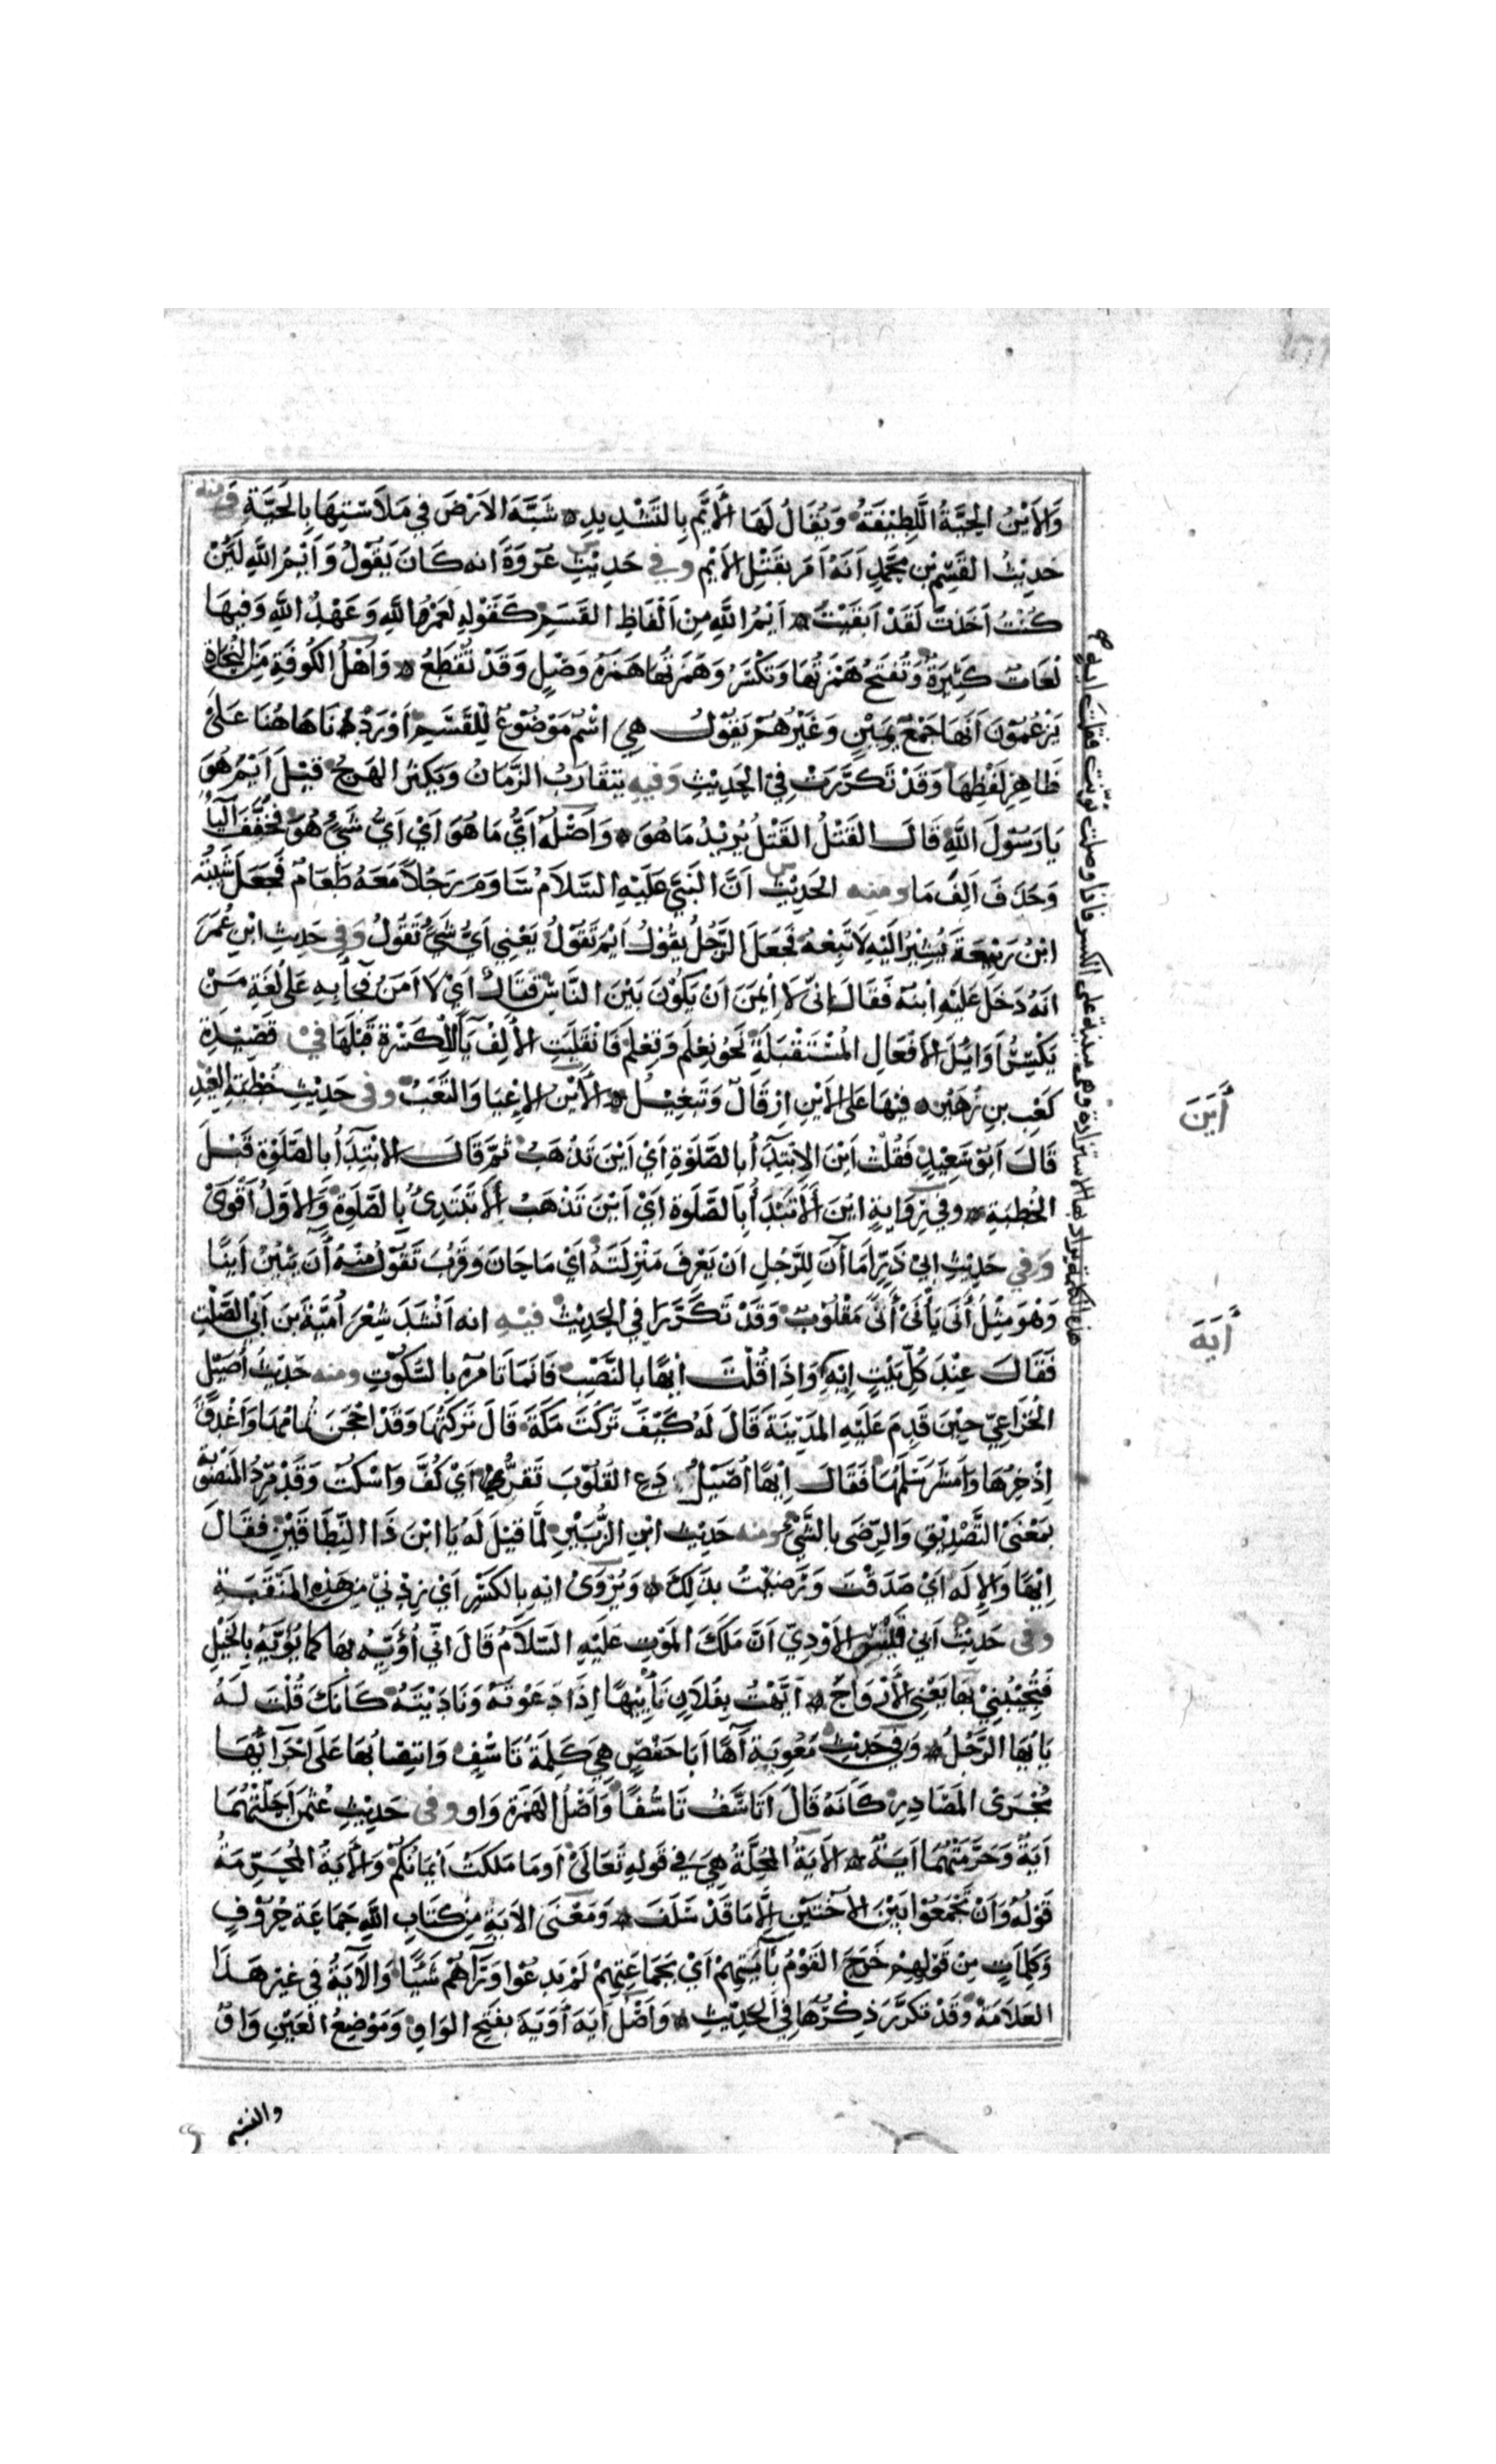 وَالأَيْنُ الحَيَّةُ اللَّطِيْفَةُ وَيُقَالُ لَهَا الأَيِّمُ بِالتَّشْدِيدِ شَبَّهَ الاَرْضَ فِي مَلاَسَتِهَا بِالحَيَّةِ وَمنه
حَدِيْثُ القَسِمِ بْنِ مُحَمَّدٍ اَنَّهُ اَمَرَ بِقَتْلِ الأَيْمِ وفي حَدِيْثِ عُرْوَةَ انه كَانَ يَقُوْلُ وَاَيْمُ اللَّهِ لَئِنْ
كُنْتَ اَخَذْتَ لَقَدْ اَبْقَيْتَ اَيْمُ اللَّهِ مِنْ اَلْفَاظِ القَسَمِ كَقَوْلِهِ لَعَمْرُ اللَّهِ وَعَهْدُ اللَّهِ وَفِيهَا
لُغَاتٌ كَثِيْرَةٌ وَتُفْتَحُ هَمْزَتُهَا وَتُكْسَرُ وَهَمْزَتُهَا هَمْزَةُ وَصْلٍ وَقَدْ تُقْطَعُ وَاَهْلُ الكُوفَةِ مِنَ النُّحَاةِ
يَزْعُمُوْنَ اَنَّهَا جَمْعُ يَمِيْنٍ وَغَيْرُهُمْ يَقُوْلُ هِيَ اسْمٌ مَوْضُوْعٌ لِلْقَسَمِ اَوْرَدْنَاهَا هُنَا عَلَىْ
ظَاهِرِ لَفْظِهَا وَقَدْ تَكَرَّرَتْ فِيْ الحَدِيْثِ وَفيه يَتَقَارَبُ الزَّمَانُ وَيَكْثُرُ الهَرْجُ قِيْلَ اَيْمُ هُوَ
يَا رَسُوْلَ اللَّهِ قَالَ القَتْلُ القَتْلُ يُرِيْدُ مَا هُوَ وَاَصْلُهُ اَيُّ مَا هُوَ اَيْ اَيُّ شَيْءٍ هُوَ فَخُفِّفَ اليَاءُ
وَحَذَفَ اَلِفَ مَا ومنه الحَدِيْثُ اَنَّ النَّبِيَّ عَلَيْهِ السَّلاَمُ سَاوَمَ رَجُلاً مَعَهُ طَعَامٌ فَجَعَلَ شَيْبَةُ
ابْنُ رَبِيْعَةَ يُشِيْرُ اِلَيْهِ لاَ تَبِعْهُ فَجَعَلَ الرَّجُلُ يَقُوْلُ اَيْمَ تَقُوْلُ يَعْنِي اَيُّ شَيْءٍ تَقُوْلُ وَفي حَدِيثِ ابْنِ عُمَرَ
انَهُ دَخَلَ عَلَيْهِ ابنُه فَقَالَ اِنِّيْ لاَ اِيْمَنَ اَنْ يَكُوْنَ بَيْنَ النَّاسِ قِتَالٌ اَيْ لاَ اَمَنَ فَجَاءَ بِهِ عَلَى لُغَةِ مَنْ
يَكْسِرُ اَوَائِلَ الاَفْعَالِ المُسْتَقْبَلَةِ نَحْوُ نِعْلَم وَتِعْلَمُ فَانْقَلَبَتِ الأَلِفُ يَاءً لِلْكَسْرَةِ قَبْلَهَا في قَصِيْدَةِ
كَعْبِ بنِ زُهَيْرٍ فِيْهَا عَلَى الأَيْنِ اِرْقَالٌ وَتَبْغِيْلٌ الأَيْنُ الإِعْيَا وَالتَّعَبُ وفي حَدِيْثِ خُطْبَةِ العِيْدِ
قَالَ اَبُوْ سَعِيْدٍ فَقُلْتُ اَيْنَ الاِبْتِدَآءُ بِالصَّلَوةِ اَيْ اَيْنَ تَذْهَبُ ثُمَّ قَالَ الاِبْتِدَآءُ بِالصَّلَوةِ قَبْلَ
الخُطْبَةِ وفي رِوَايَةٍ ايْنَ أَلاَ تَبْدَأُ بِالصَّلَوةِ اَيْ اَيْنَ تَذْهَبُ أَلاَ تَبْتَدِئُ بِالصَّلَوةِ وَالاَوَّلُ اَقْوَىْ
وَفي حَدِيْثِ ابِيْ ذَرٍّ اَمَا آنَ لِلرَّجُلِ اَنْ يَعْرِفَ مَنْزِلَتَهُ اَيْ مَا حَانَ وَقَرُبَ تَقُوْلُ مِنْهُ آنَ يَئِيْنُ اَيْنًا
وَهْوَ مِثْلُ أَنَى يَأْنَىْ أَنًى مَقْلُوْبٌ وَقَدْ تَكَرَّرَا فِي الحَدِيْثِ فيْهِ انه اَنْشَدَ شِعْرَ اُمَيَّةَ بْنَ اَبِي الصَّلْتِ
فَقَالَ عِنْدَ كُلِّ بَيْتٍ اِيْهِ وَاِذَا قُلْتَ اِيْهًا بِالنَّصْبِ فَاِنَّمَا تَامُرُه بِالسُّكُوْتِ ومنه حَدِيْثُ اُصَيْلٍ
الخُزَاعِيِّ حِيْنَ قَدِمَ عَلَيْهِ المَدِيْنَةَ قَالَ لَهُ كَيْفَ تَرَكْتَ مَكَّةَ قَالَ تَرَكْتُهَا وَقَدْ اَحْجَنَ ثُمَامُهَا وَاَعْذَقَ
اِذْخِرُهَا وَاَمْشَرَ سَلَمُهَا فَقَالَ اِيْهًا اُصَيْلُ دَعِ القُلُوْبَ تَقِرُّ اَيْ كُفَّ وَاسْكُتْ وَقَدْ تَرِدُ المَنْصُوْبَةُ
بِمَعْنَىْ التَّصْدِيْقِ وَالرِّضَى بِالشَّيْءِ ومنه حَدِيْثُ ابْنِ الزُّبَيْرِ لَمَّا قِيْلَ لَهُ يَا ابْنَ ذَا النِّطَاقَيْنِ فَقَالَ
اِيْهًا وَالإِلَهِ اَيْ صَدَقْتَ وَرَضِيْتُ بِذَلِكَ وَيُرْوَىْ ايه بِالكَسْرِ اَيْ زِدْنِيْ مِنْ هَذِهِ المَنْقَبَةِ
وفي حَدِيْثِ اَبِي قَيْسٍ الأَوْدِيِّ اَنَّ مَلَكَ المَوْتِ عَلَيْهِ السَّلاَمُ قَالَ اِنِّي اُؤَيِّهُ بِهَا كَمَا يُؤَيَّهُ بِالخَيْلِ
فَتُجِيْبُنِيْ بَهَا يَعْنِي الأَرْوَاحَ اَيَّهْتُ بِفُلاَنٍ تَأْيِيْهًا اِذَا دَعَوْتَهُ وَنَادَيْتَهُ كَاَنَّكَ قُلْتَ لَهُ
يَا اَيُّهَا الرَّجُلُ وَفي حَدِيْثِ مَعْوِيَةَ آهًا اَبَا حَفْصٍ هِيَ كَلِمَةُ تَاَسُّفٍ وَانْتِصَابُهَا عَلَى اِجْرَائِهَا
مُجْرَى المَصَادِرِ كَاَنَّهُ قَالَ اَتَاَسَّفُ تَاَسُّفًا وَاَصْلُ الهَمْزَةِ وَاو وفي حَدِيْثِ عُثْمَنَ اَحَلَّتْهُمَا
آيَةٌ وَحَرَّمَتْهُمَا آيَةٌ الآيَةُ المُحِلَّةُ هِيَ فِي قَوْلِهِ تَعَالَىْ اَوْ مَا مَلَكَتْ اَيْمَانُكُمْ وَالأَيَةُ المُحَرِّمَةُ
قَوْلُهُ وَاَنْ تَجْمَعُوْا بَيْنَ الأُخْتَيْنِ اِلَّا مَا قَدْ سَلَفَ وَمَعْنَى الآيَةِ مِنْ كِتَابِ اللَّهِ جَمَاعَةُ حُرُوْفٍ
وَكَلِمَاتٍ مِنْ قَوْلِهِمْ خَرَجَ القَوْمُ بِآيَتِهِمْ اَيْ بِجَمَاعَتِهِمْ لَمْ يَدَعُوْا وَرَآهُمْ شَيْئًا وَالآيَةُ فِي غَيْرِ هَذَا
العَلاَمَةُ وَقَدْ تَكَرَّرَ ذِكْرُهَا فِي الحَدِيْثِ وَاَصْلُ آيَة اَوَيَةٌ بِفَتْحِ الوَاوِ وَمَوْضِعُ العَيْنِ وَاوٌ
هذه كلمة يراد بها الاستزادة وهي مبنية على الكسر فاذا وصلت نونت فقلت ايه
أَيَنَ
أَيَهَ
والنسبة